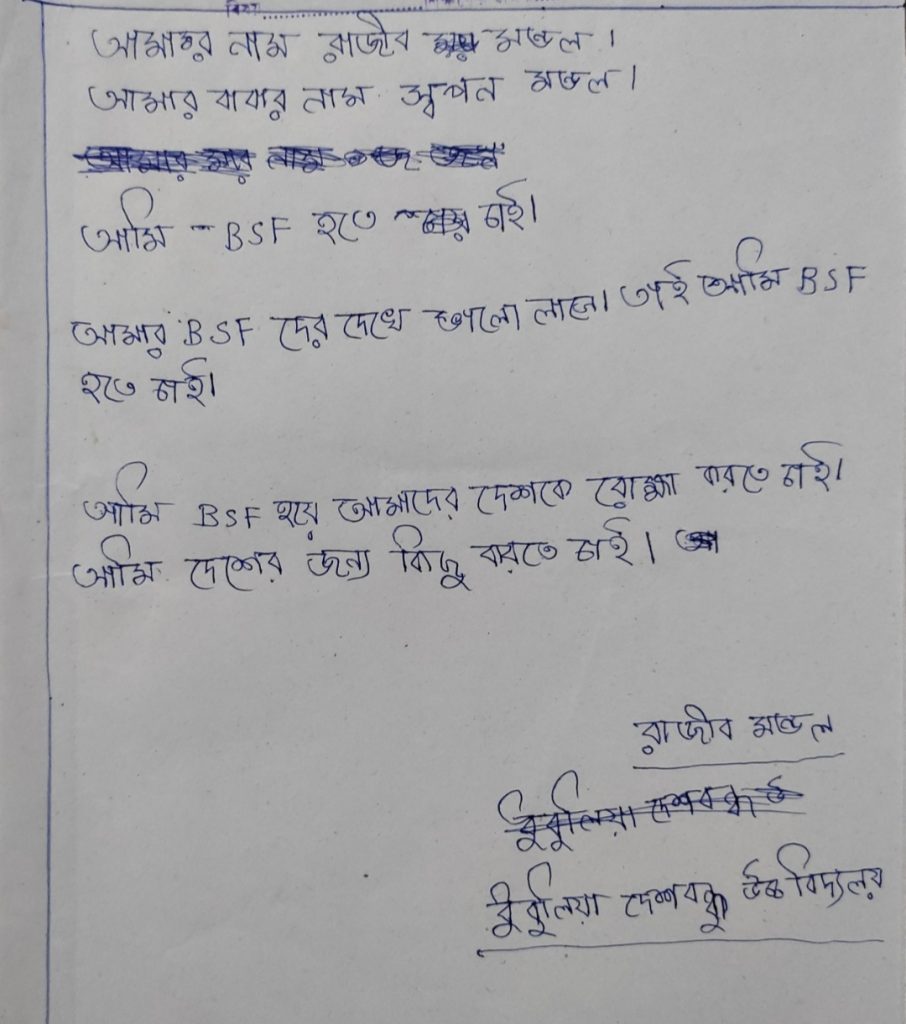 বিষয়
আমার নাম রাজীব মন্ডল ।
আমার বাবার নাম স্বপন মন্ডল ।
আমি - BSF হতে চাই।
আমার BSF দের দেখে ভালো লাগে। তাই আমি BSF
হতে চাই।
আমি BSF হয়ে আমাদের দেশকে রোক্ষা করতে চাই।
আমি দেশের জন্য কিছু করতে চাই ।
রাজীব মন্ডল
দেশবন্ধু উ
দেশবন্ধু উচ্চ বিদ্যলয়